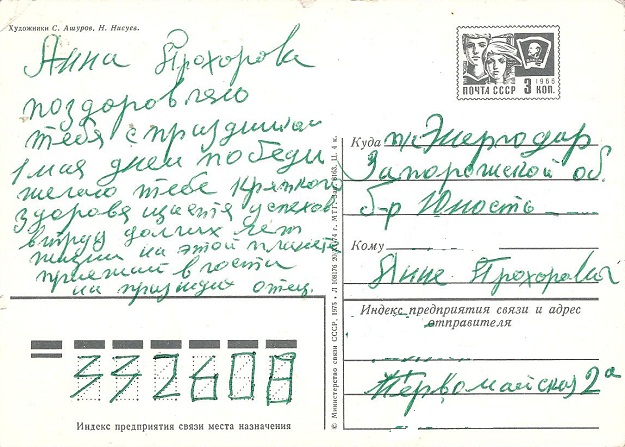 Художники С. Ашуров, Н. Нисуев.
Анна Прохорова
поздоровляю
тебя с праздникам
1 мая днем победи
желаю тебе
здоровя щастя успехов
втруду долгих лет
жизни на этой
в гости
на праздник отец.
1966
ПОЧТА СССР 3 КОП.
Куда Энергодар
Запорожской об.
б-р Юность
Кому
Анне Прохоровой
Индекс предприятия связи и адрес
отправителя
Первомайская 2а
332608
Индекс предприятия связи места назначения
© Министерство связи СССР, 1975